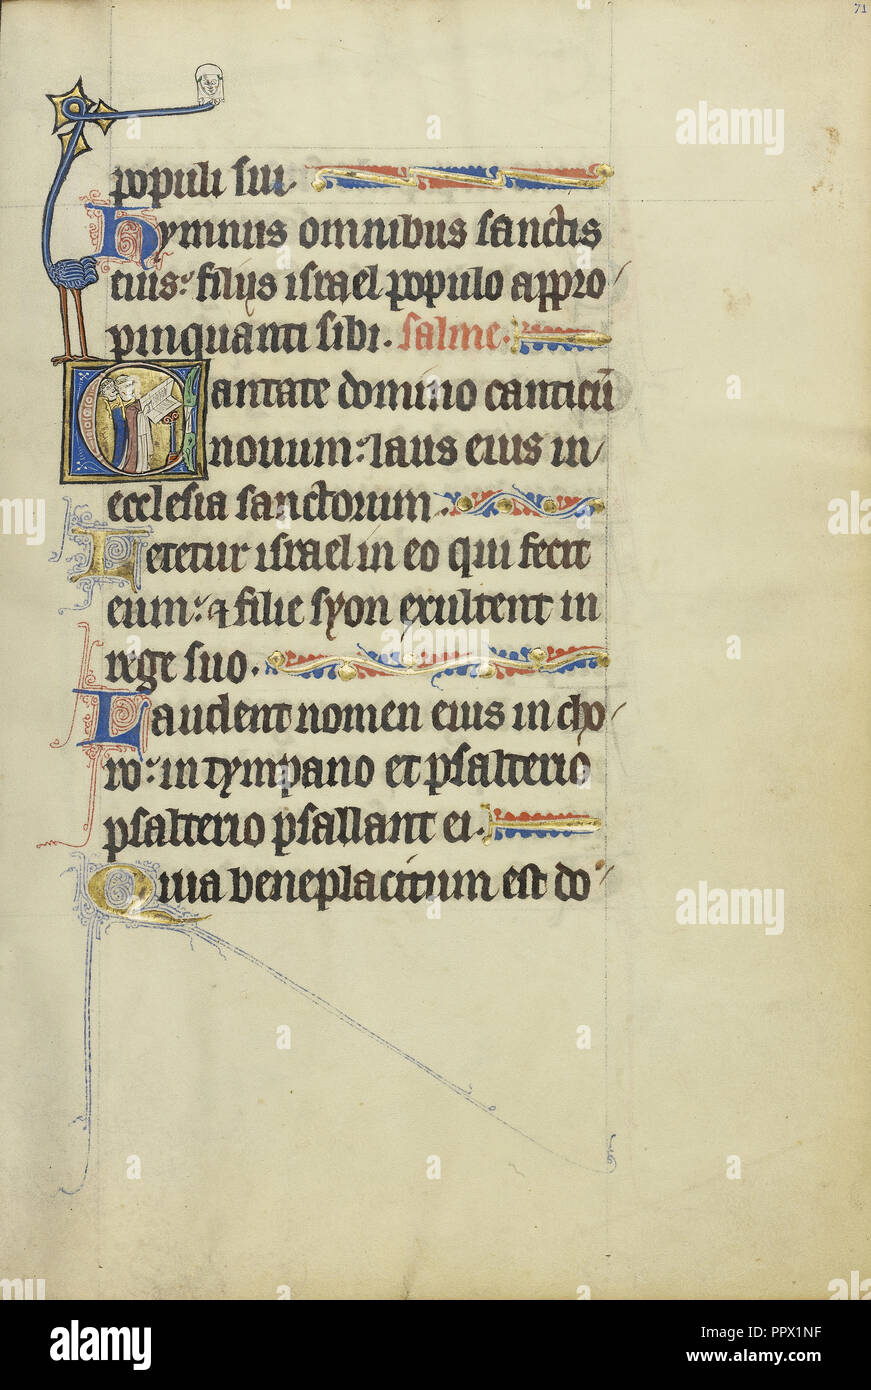 71
populi sui.
Hymnus omnibus sanctis
eius: filiis israel populo appro/
pinquanti sibi. Salme.
Cantate domino canticū
nouum: laus eius in/
ecclesia sanctorum.
Letetur israel in eo qui fecit
eum: ⁊ filie syon exultent in
rege suo.
Laudent nomen eius in cho/
ro: in tympano et psalterio
psalterio psallant ei.
Quia beneplacitum est do/
alamy
Image ID: PPX1NF
www.alamy.com